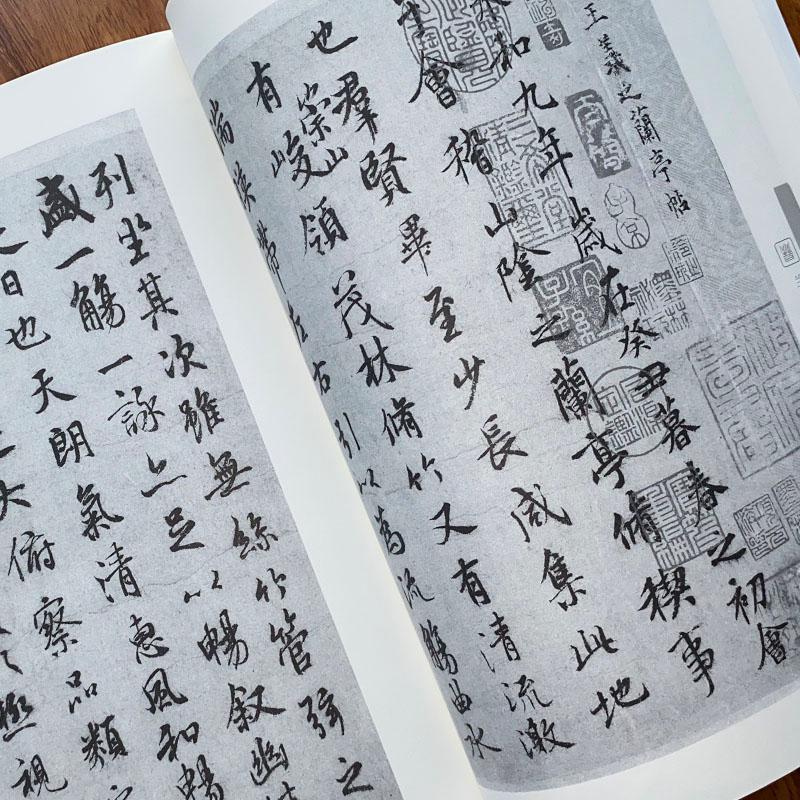 王羲之蘭亭帖
永和九年歲在癸丑暮春之初會
于會稽山陰之蘭亭脩稧事
也羣賢畢至少長咸集此地
有崇山峻領茂林脩竹又有清流激
湍暎帶左右引以為流觴曲水
列坐其次雖無絲竹管弦之
盛一觴一詠亦足以暢叙幽情
是日也天朗氣清惠風和暢
之大俯察品類
極視